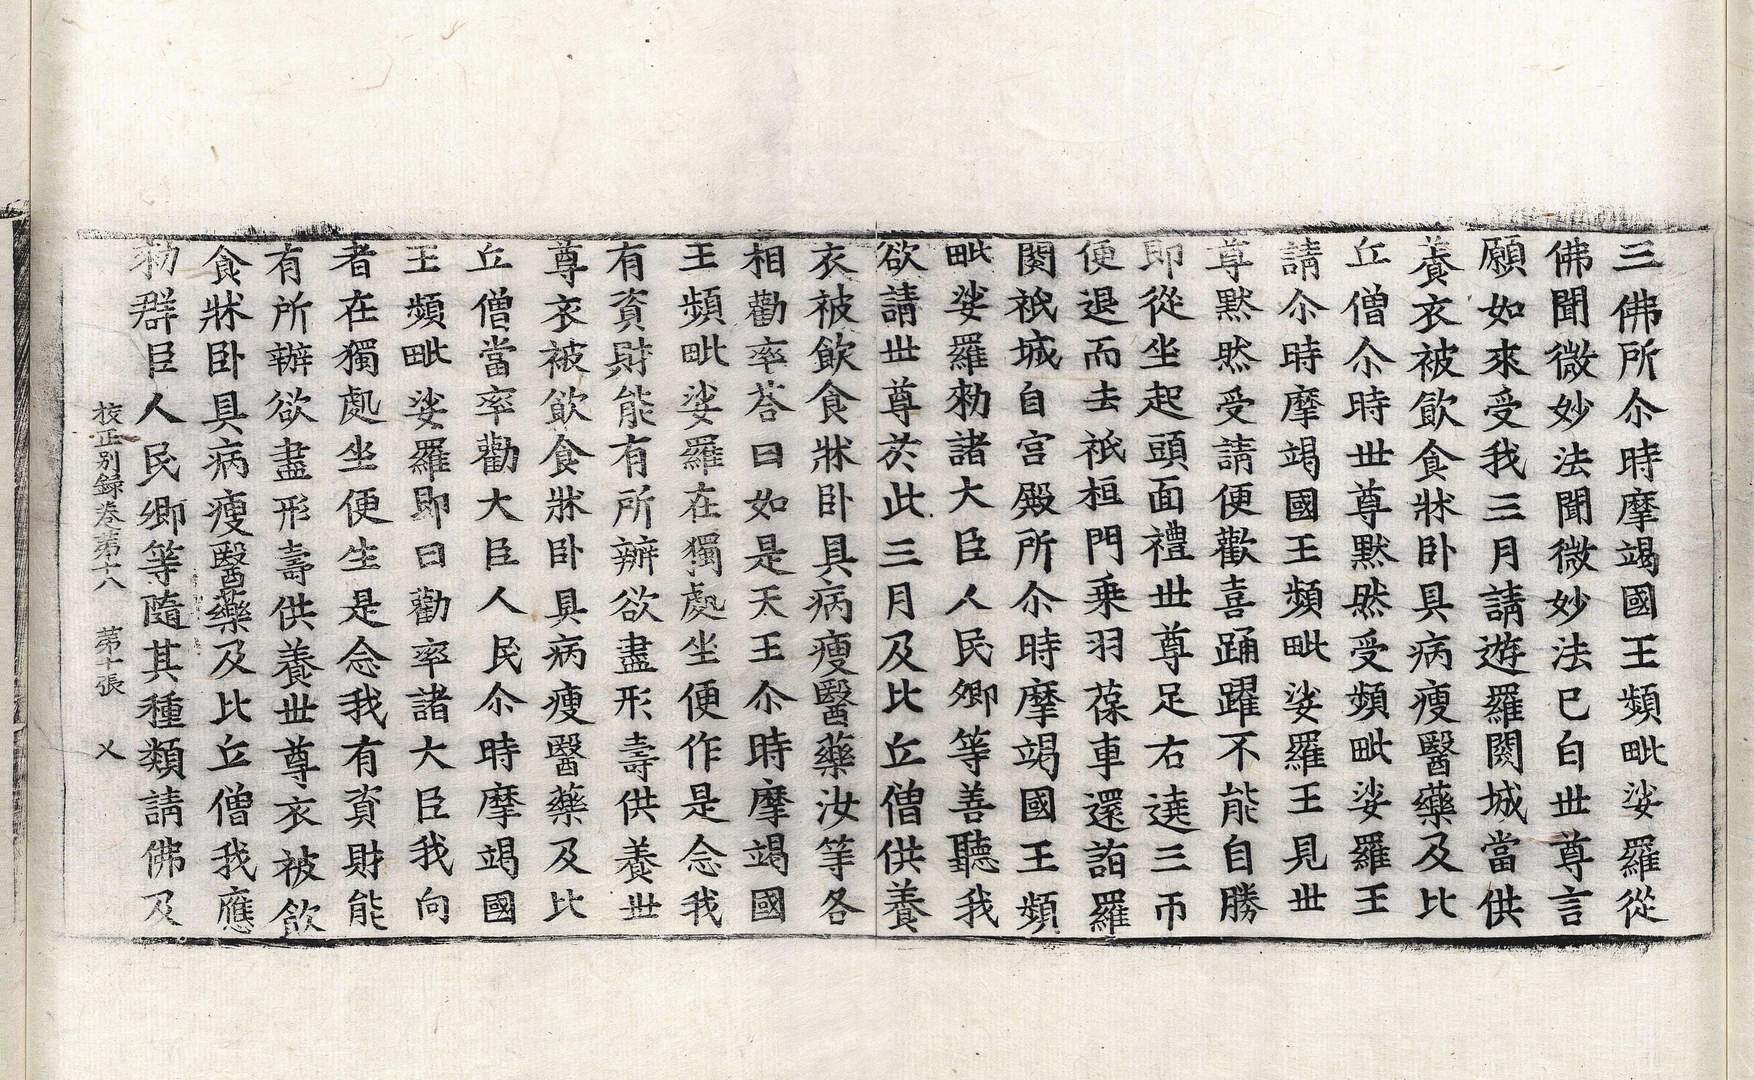 三佛所尒時摩竭國王頻毗娑羅從
佛聞微妙法聞微妙法已白世尊言
願如來受我三月請遊羅閱城當供
養衣被飲食牀卧具病瘦醫藥及比
丘僧尒時世尊默然受頻毗娑羅王
請尒時摩竭國王頻毗娑羅王見世
尊默然受請便歡喜踊躍不能自勝
即從坐起頭面禮世尊足右遶三帀
便退而去祇桓門乗羽葆車還詣羅
閱祇城自宮殿所尒時摩竭國王頻
毗娑羅勑諸大臣人民卿等善聽我
欲請世尊於此三月及比丘僧供養
衣被飲食牀卧具病瘦醫藥汝等各
相勸率荅曰如是天王尒時摩竭國
王頻毗娑羅在獨處坐便作是念我
有資財能有所辦欲盡形壽供養世
尊衣被飲食牀卧具病瘦醫藥及比
丘僧當率勸大臣人民尒時摩竭國
王頻毗娑羅即曰勸率諸大臣我向
者在獨處坐便生是念我有資財能
有所辦欲盡形壽供養世尊衣被飲
食牀卧具病瘦醫藥及比丘僧我應
勑群臣人民卿等隨其種類請佛及
校正別錄卷第十八 第十張 㐅